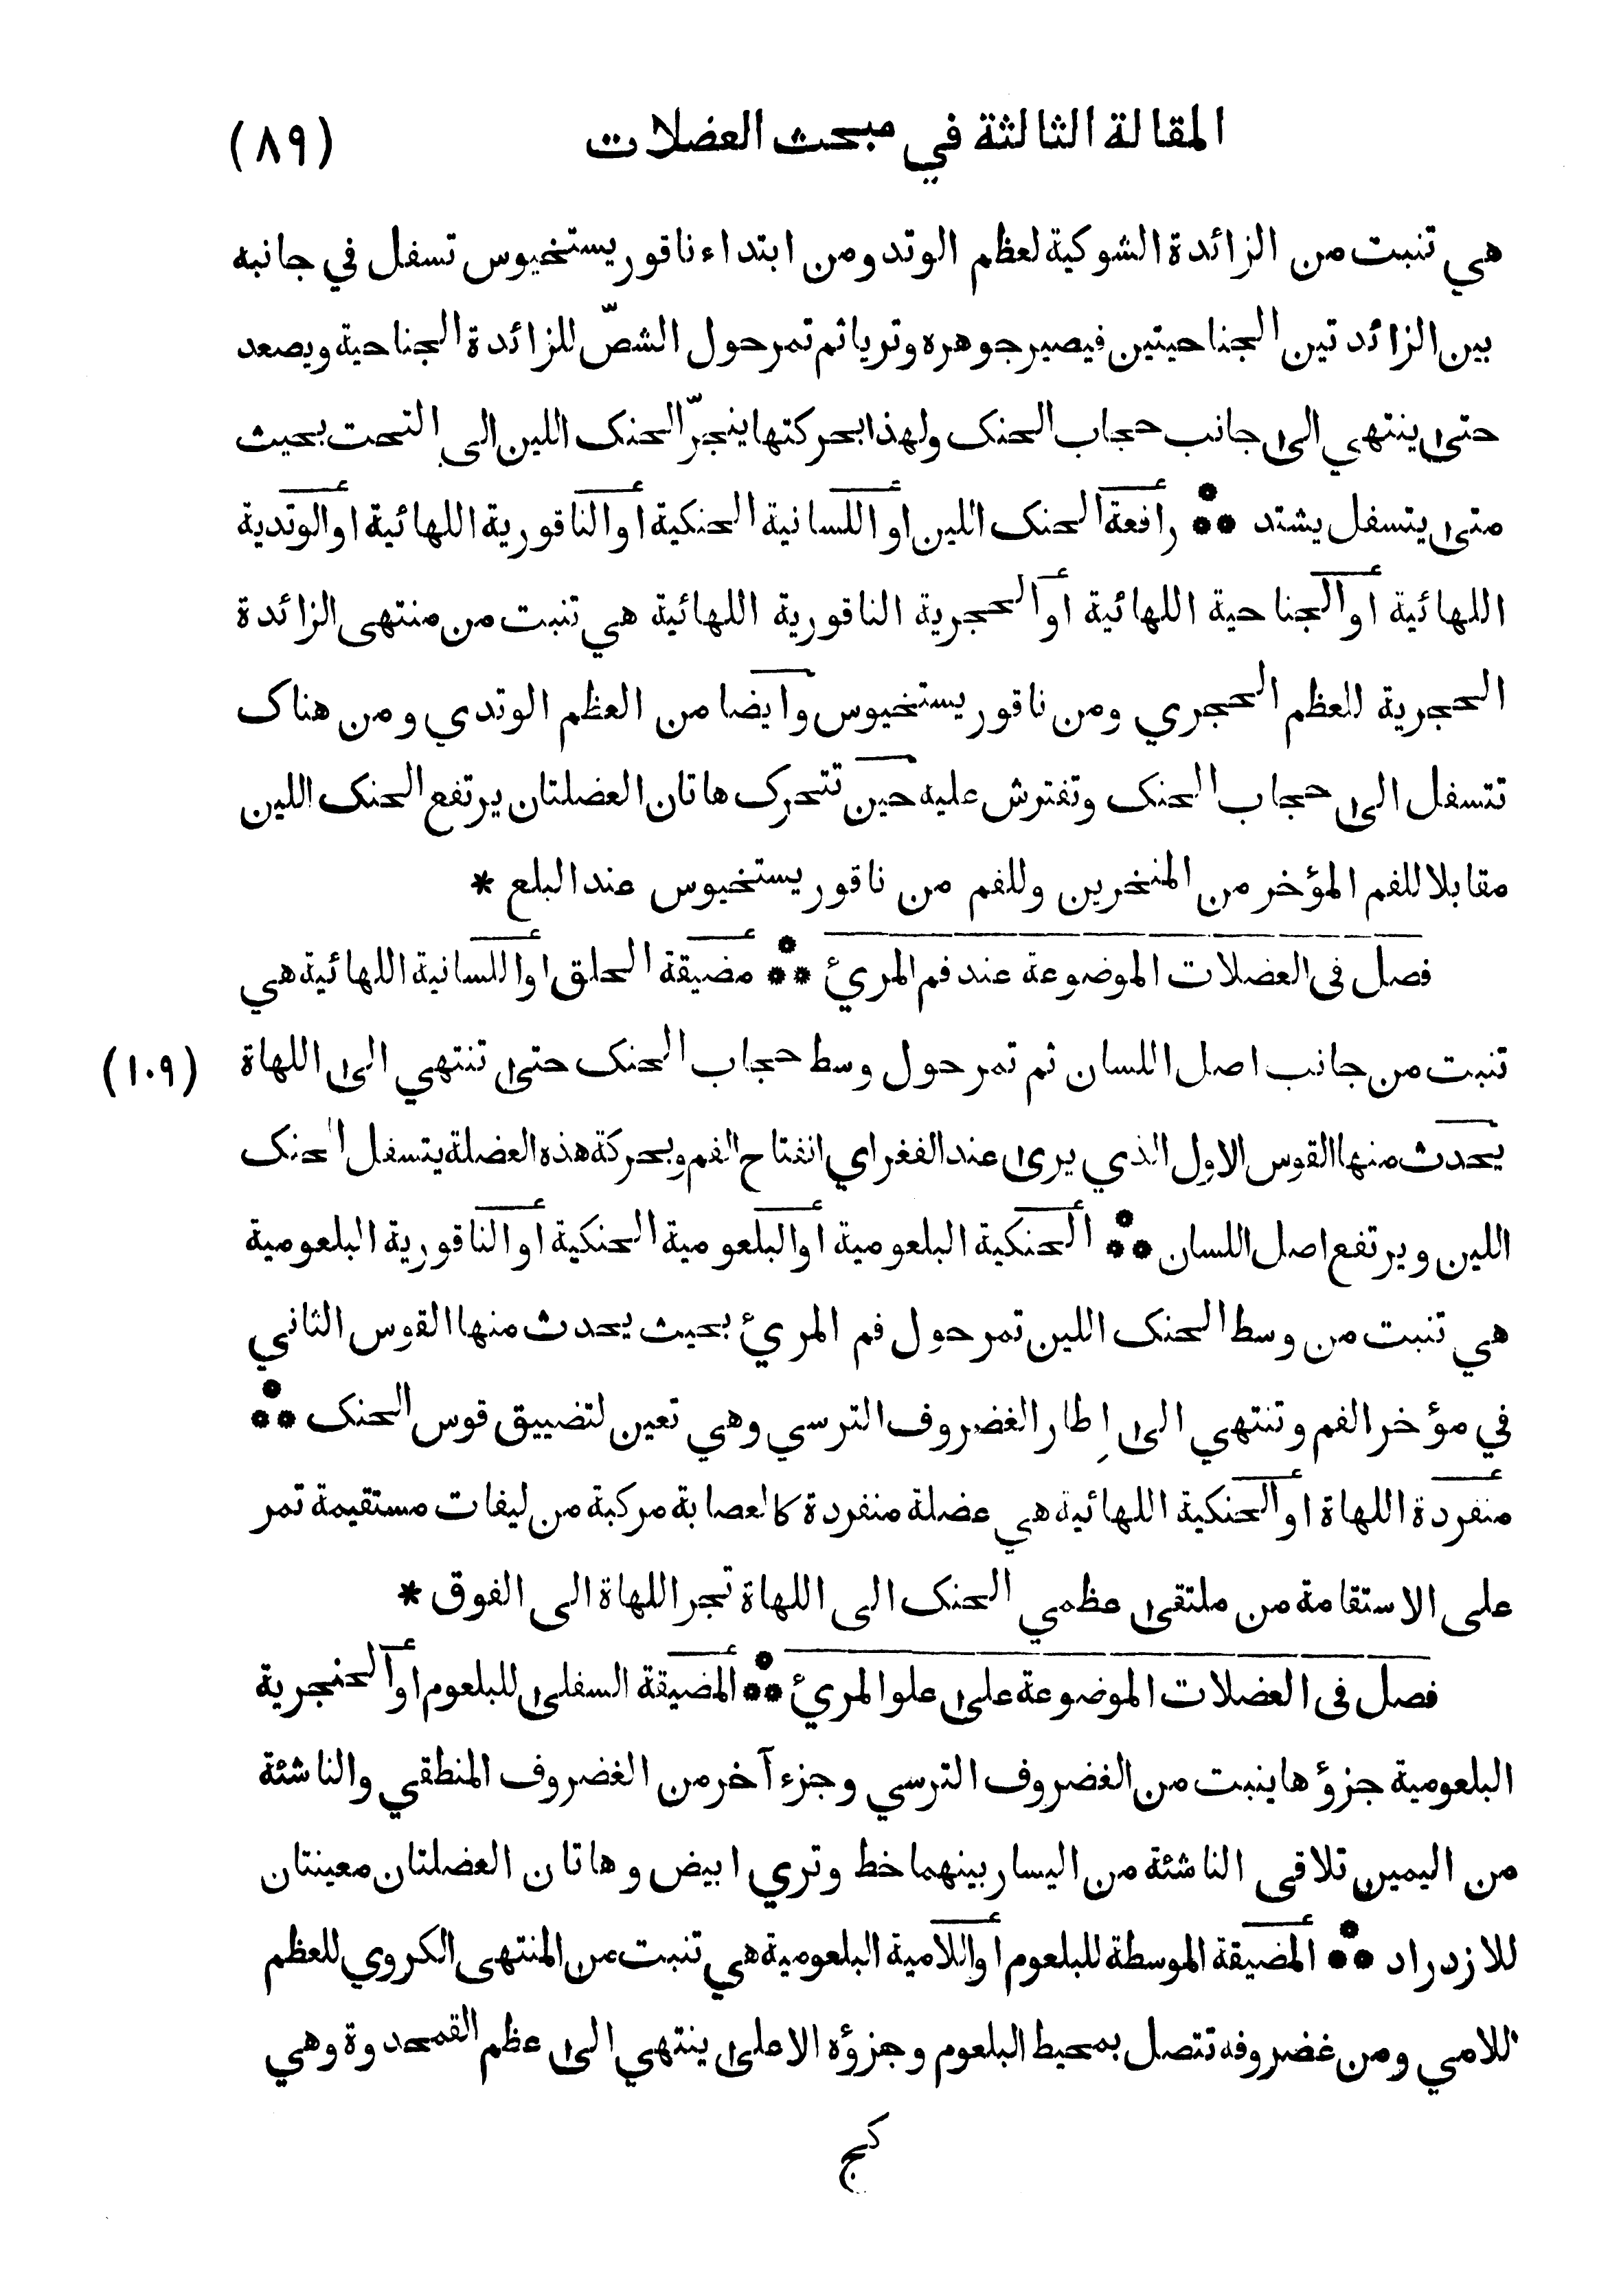 المقالة الثالثة في مبحث العضلات (٨٩)
هي تنبت من الزائدة الشوكية لعظم الوتد ومن ابتداء ناقور يستخيوس تسفل في جانبه
بين الزائدتين الجناحيتين فيصير جوهره وتريا ثم تمر حول الشصّ للزائدة الجناحية ويصعد
حتى ينتهي الى جانب حجاب الحنك ولهذا بحركتها ينجرّ الحنك اللين الى التحت بحيث
متى يتسفل يشتد ⁂ رافعة الحنك اللين او اللسانية الحنكية او الناقورية اللهائية او الوتدية
اللهائية او الجناحية اللهائية او الحجرية الناقورية اللهائية هي تنبت من منتهى الزائدة
الحجرية للعظم الحجري ومن ناقور يستخيوس وايضا من العظم الوتدي ومن هناك
تتسفل الى حجاب الحنك وتفترش عليه حين تتحرك هاتان العضلتان يرتفع الحنك اللين
مقابلا للفم المؤخر من المنخرين وللفم من ناقور يستخيوس عند البلع *
فصل فى العضلات الموضوعة عند فم المريئ ⁂ مضيقة الحلق او اللسانية اللهائية هي
تنبت من جانب اصل اللسان ثم تمر حول وسط حجاب الحنك حتى تنتهي الى اللهاة (١٠٩)
يحدث منها القوس الاول الذي يرى عند الفغر اي انفتاح الفم وبحركة هذه العضلة يتسفل الحنك
اللين ويرتفع اصل اللسان ⁂ الحنكية البلعومية او البلعومية الحنكية او الناقورية البلعومية
هي تنبت من وسط الحنك اللين تمر حول فم المريئ بحيث يحدث منها القوس الثاني
في مؤخر الفم وتنتهي الى إطار الغضروف الترسي وهي تعين لتضييق قوس الحنك ⁂
منفردة اللهاة او الحنكية اللهائية هي عضلة منفردة كالعصابة مركبة من ليفات مستقيمة تمر
على الاستقامة من ملتقى عظمي الحنك الى اللهاة تجر اللهاة الى الفوق *
فصل فى العضلات الموضوعة على علو المريئ ⁂ المضيقة السفلى للبلعوم او الحنجرية
البلعومية جزؤها ينبت من الغضروف الترسي وجزء آخر من الغضروف المنطقي والناشئة
من اليمين تلاقى الناشئة من اليسار بينهما خط وتري ابيض وهاتان العضلتان معينتان
للازدراد ⁂ المضيقة الموسطة للبلعوم او اللامية البلعومية هي تنبت من المنتهى الكروي للعظم
اللامي ومن غضروفه تتصل بمحيط البلعوم وجزؤه الاعلى ينتهي الى عظم القمحدوة وهي
كج